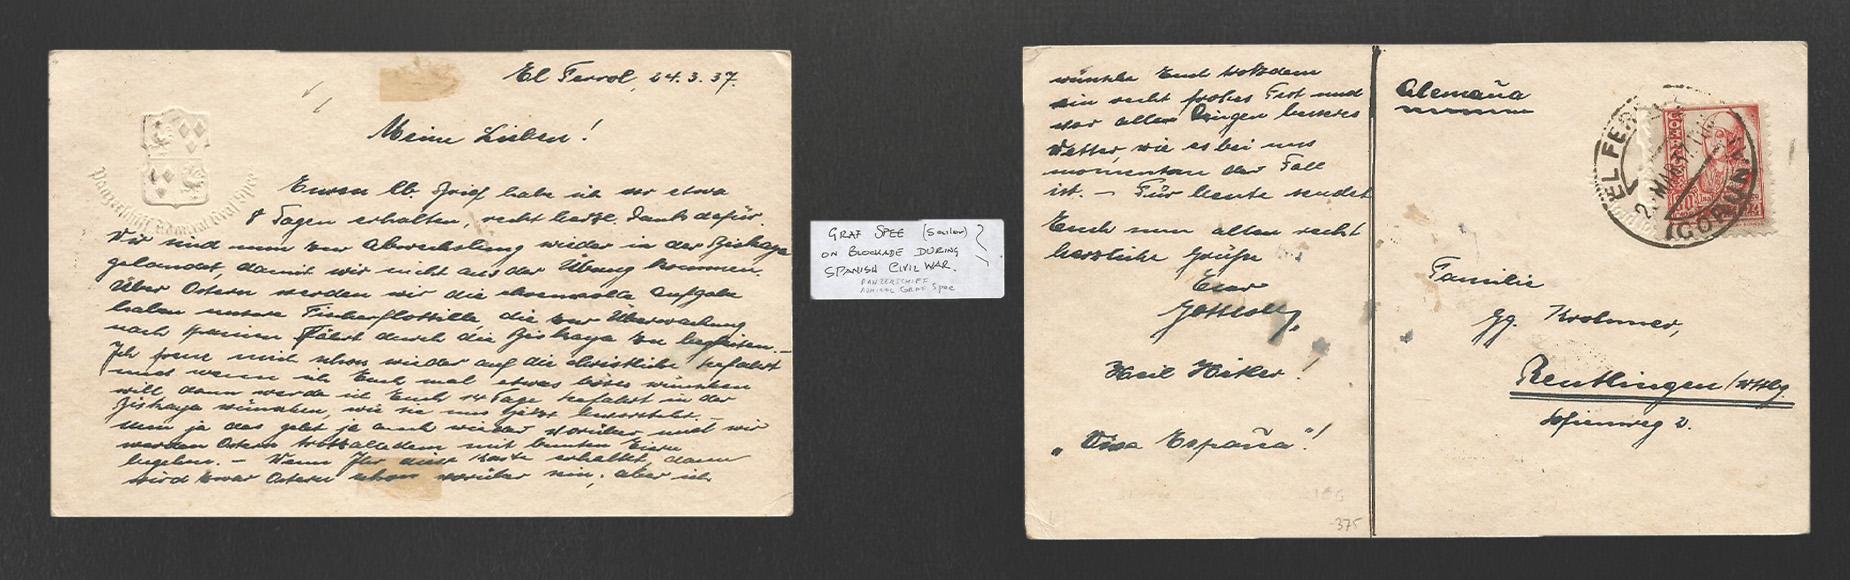 El Ferrol, 24.3.37.
Meine Lieben!
Panzerschiff Admiral Graf Spee
Euren lb. Brief habe ich vor etwa
8 Tagen erhalten, recht herzl. Dank dafür.
Wir sind nun zur Abwechslung wieder in der Biskaya
gelandet, damit wir nicht aus der Übung kommen.
Über Ostern werden wir die ehrenvolle Aufgabe
haben unsere Fischerflottille, die zur Überwachung
nach Spanien fährt durch die Biskaya zu begleiten. –
Ich freue mich schon wieder auf die christliche Seefahrt
und wenn ich Euch mal etwas böses wünschen
will dann werde ich Euch 14 Tage Seefahrt in der
Biskaya wünschen, wie sie uns jetzt bevorsteht. –
Nun ja das geht ja auch wieder vorüber und wir
werden Ostern trotzalledem mit bunten Eiern
begehen. – Wenn Ihr diese Karte erhaltet, dann
wird zwar Ostern schon vorüber sein, aber ich
GRAF SPEE (Sailor)
ON BLOCKADE DURING
SPANISH CIVIL WAR.
PANZERSCHIFF
ADMIRAL GRAF Spee
wünsche Euch trotzdem
ein recht frohes Fest und
vor allen Dingen besseres
Wetter, wie es bei uns
momentan der Fall
ist. – Für heute sendet
Euch nun allen recht
herzliche Grüße
Euer
Heil Hitler!
"Viva España"!
-375
Alemaña
EL FERROL
(CORUÑA)
CORREOS
30
Familie
Gg. Krohmer,
Reutlingen/Wttbg.
Sofienweg 2.